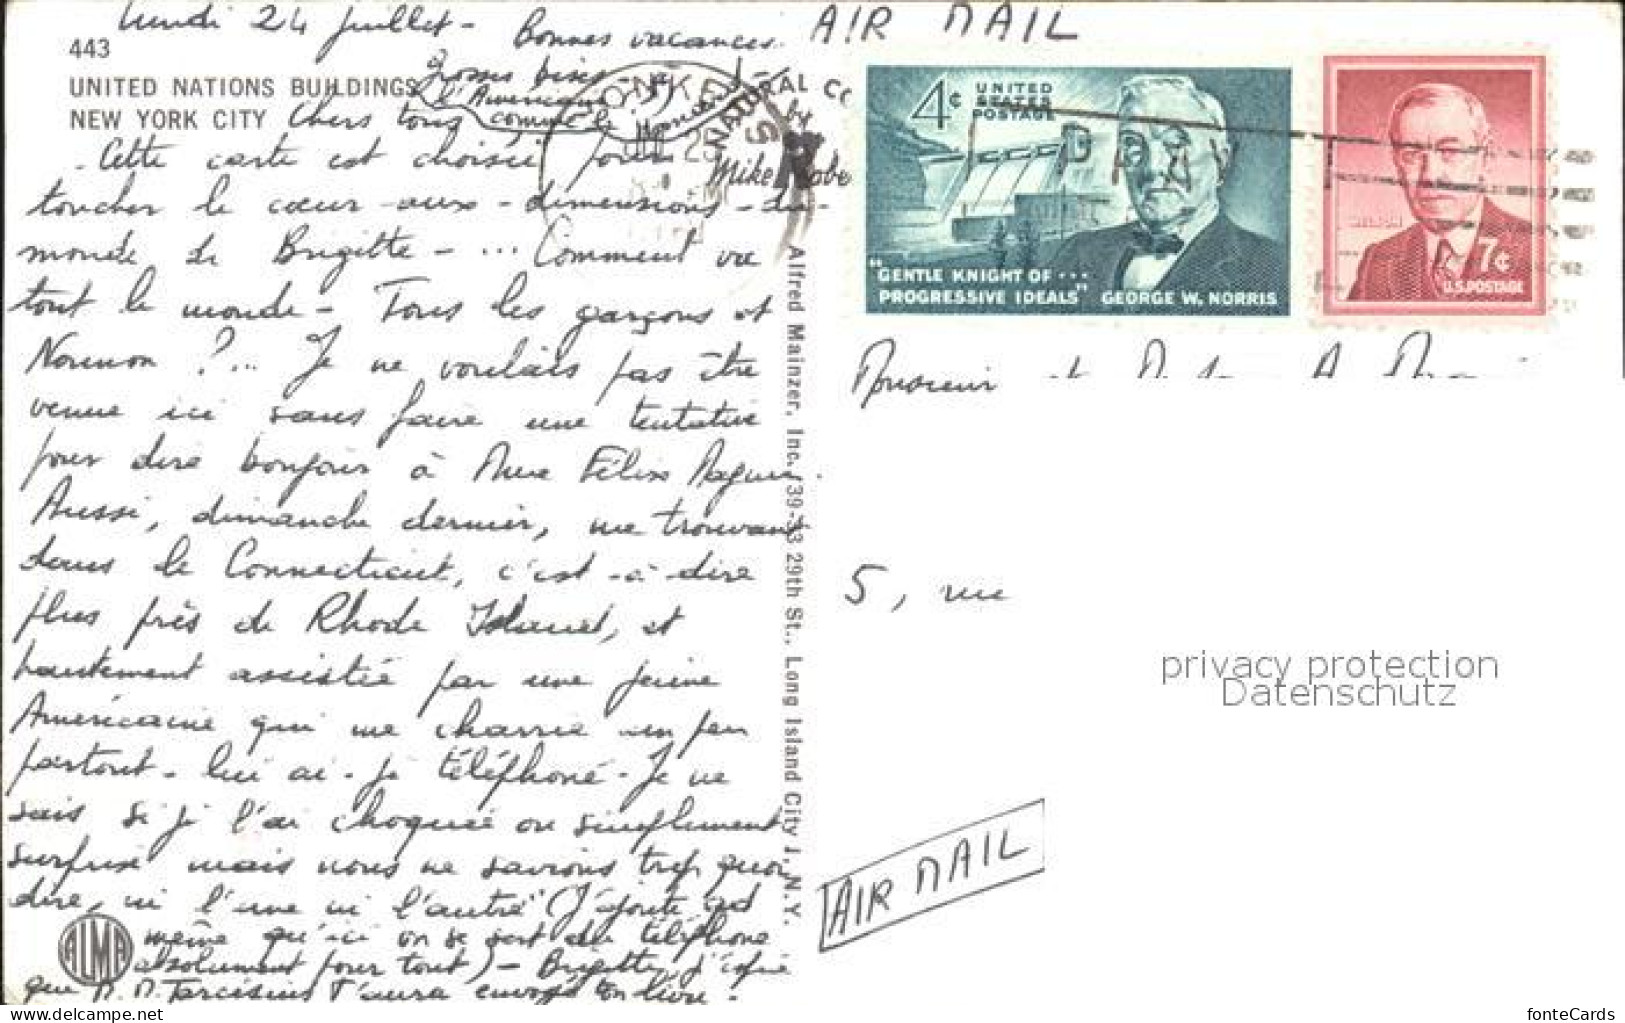 lundi 24 juillet - Bonnes vacances.
443
UNITED NATIONS BUILDINGS
NEW YORK CITY
Grosses bises
l'Américaine
comme le
Chers tous
Cette carte est choisie pour
toucher le cœur-aux-dimensions-du-
monde de Brigitte - ... Comment va
tout le monde - Tous les garçons et
? ... Je ne voulais pas être
venue ici sans faire une tentative
pour dire bonjour à Mme Félix
Aussi, dimanche dernier, me trouvant
dans le Connecticut, c'est-à-dire
plus près de Rhode Island, et
hautement assistée par une jeune
Américaine qui me charrie un peu
partout - lui ai-je téléphoné - Je ne
sais si je l'ai choquée ou simplement
surprise mais nous ne savions trop quoi
dire, ni l'une ni l'autre (J'ajoute tout
même qu'ici on se sert du téléphone
absolument pour tout) - Brigitte, j'espère
que M. M. Tarcisius t'aura envoyé ton livre.
ALMA
NATURAL CO
by
Mike Robe
Alfred Mainzer, Inc., 39-33 29th St., Long Island City 1, N.Y.
AIR MAIL
4¢ UNITED
STATES
POSTAGE
"GENTLE KNIGHT OF ...
PROGRESSIVE IDEALS" GEORGE W. NORRIS
7¢
U.S. POSTAGE
PRAY
Monsieur et
5, rue
privacy protection
Datenschutz
AIR MAIL
www.delcampe.net
fonteCards